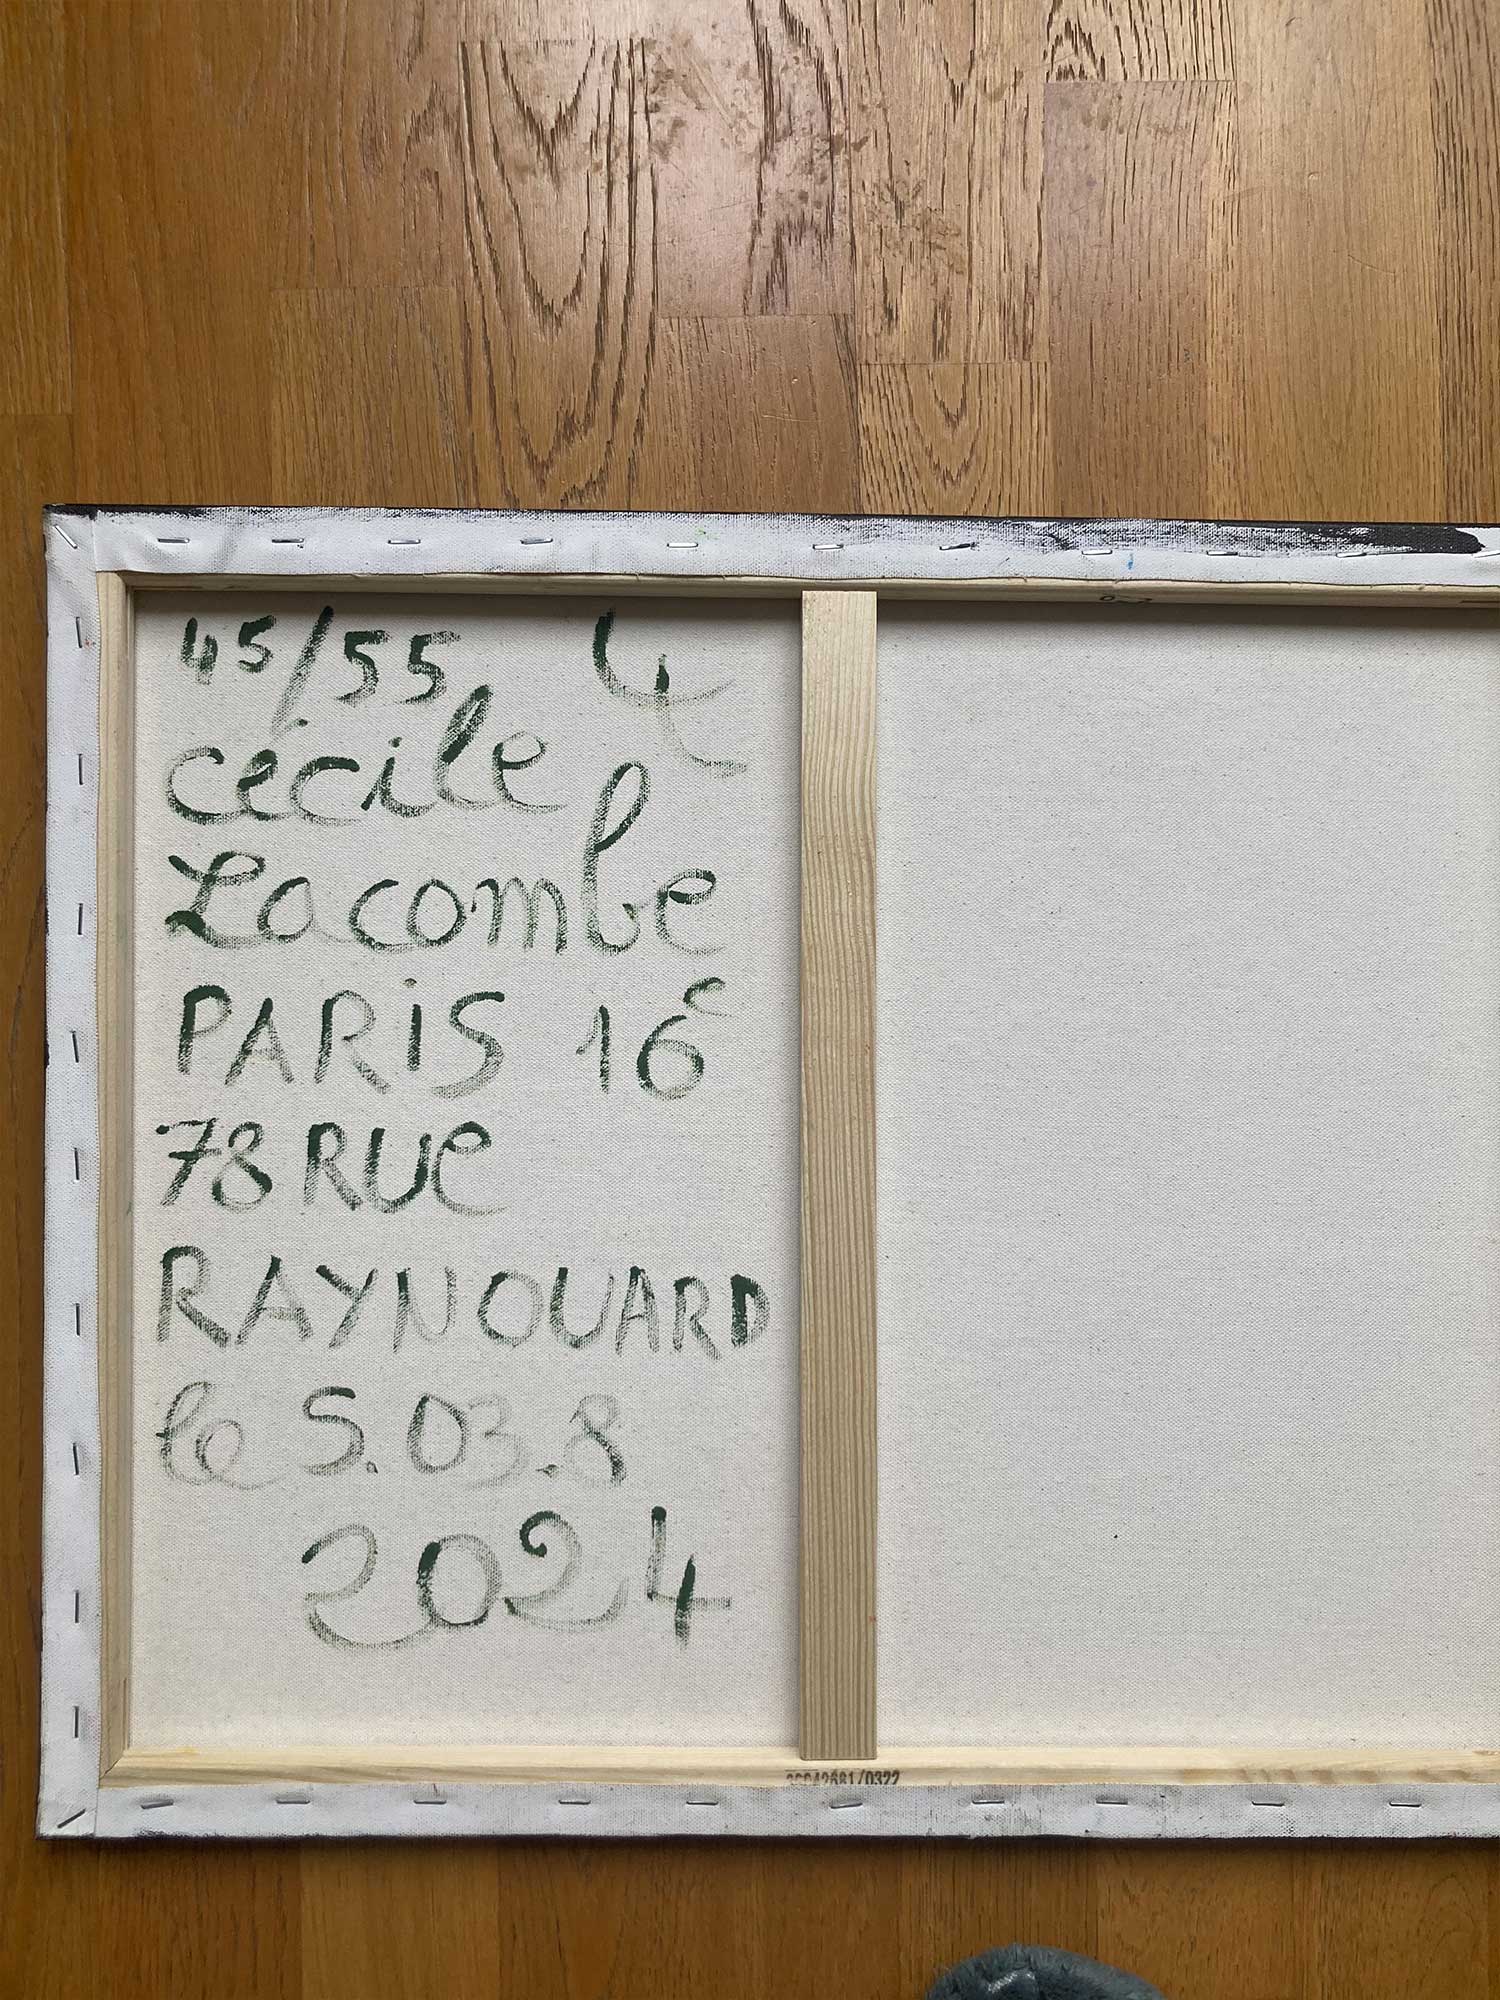 45/55 4
cécile
Lacombe
PARiS 16e
78 RUe
RAYNOUARD
le 5.03.8
2024